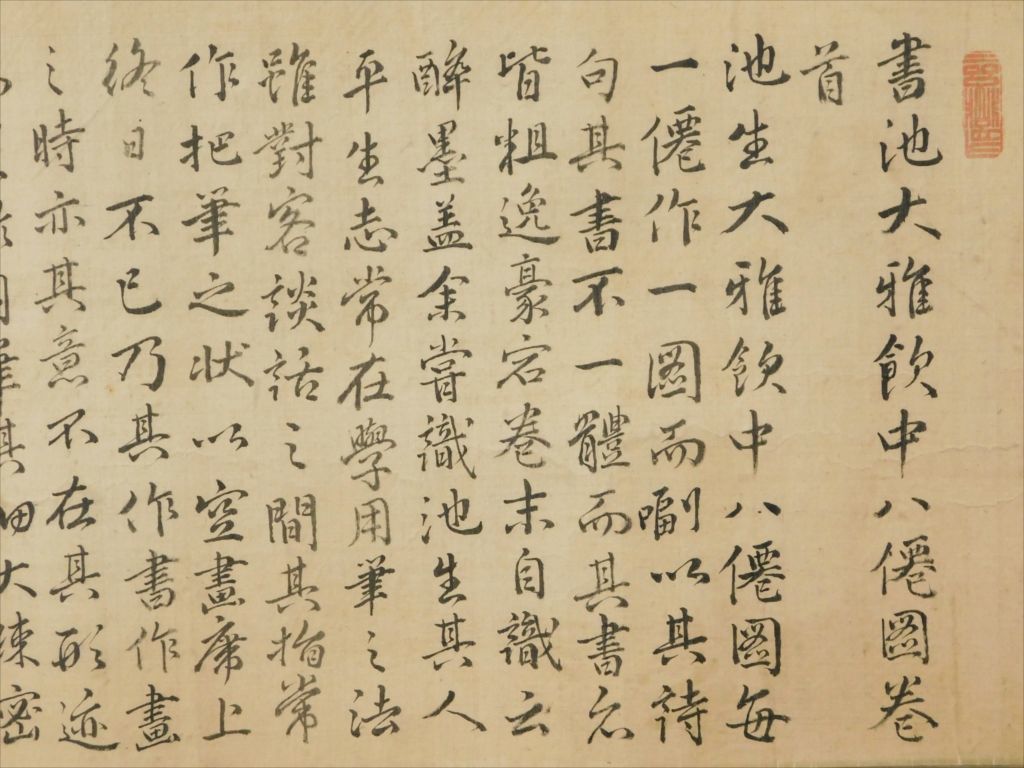 書池大雅飲中八僊圖卷
首
池生大雅飲中八僊圖每
一僊作一圖而副以其詩
句其書不一體而其書
皆粗逸豪宕卷末自識云
醉墨蓋余嘗識池生其人
平生志常在學用筆之法
雖對客談話之間其指常
作把筆之状以空畫席上
終日不已乃其作書作畫
之時亦其意不在其形迹